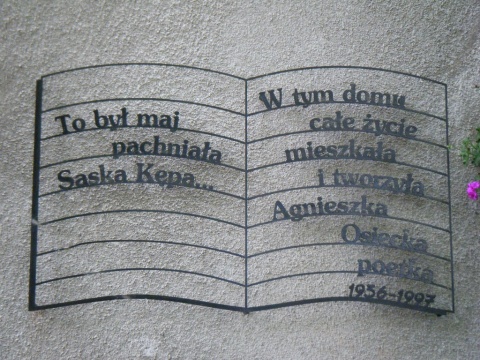 To był maj
pachniała
Saska Kępa...
W tym domu
całe życie
mieszkała
i tworzyła
Agnieszka
Osiecka
poetka
1936-1997